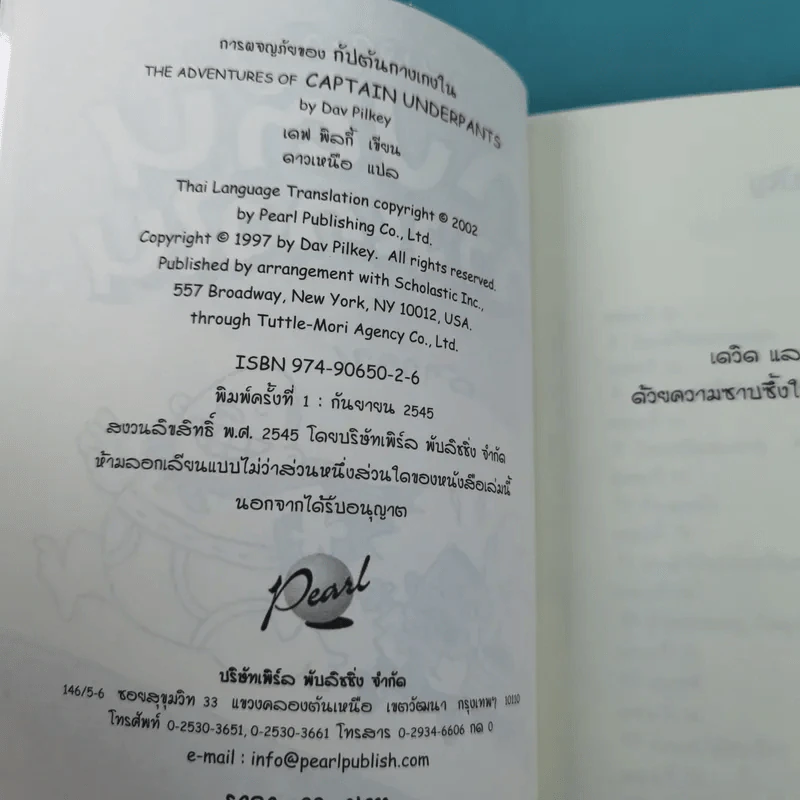 การผจญภัยของ กัปตันกางเกงใน
THE ADVENTURES OF CAPTAIN UNDERPANTS
by Dav Pilkey
เดฟ พิลกี้ เขียน
ดาวเหนือ แปล
Thai Language Translation copyright © 2002
by Pearl Publishing Co., Ltd.
Copyright © 1997 by Dav Pilkey. All rights reserved.
Published by arrangement with Scholastic Inc.,
557 Broadway, New York, NY 10012, USA.
through Tuttle-Mori Agency Co., Ltd.
ISBN 974-90650-2-6
พิมพ์ครั้งที่ 1 : กันยายน 2545
สงวนลิขสิทธิ์ พ.ศ. 2545 โดยบริษัทเพิร์ล พับลิชชิ่ง จำกัด
ห้ามลอกเลียนแบบไม่ว่าส่วนหนึ่งส่วนใดของหนังสือเล่มนี้
นอกจากได้รับอนุญาต
Pearl
บริษัทเพิร์ล พับลิชชิ่ง จำกัด
146/5-6 ซอยสุขุมวิท 33 แขวงคลองตันเหนือ เขตวัฒนา กรุงเทพฯ 10110
โทรศัพท์ 0-2530-3651, 0-2530-3661 โทรสาร 0-2934-6606 กด 0
e-mail : info@pearlpublish.com
เดวิด แล
ด้วยความซาบซึ้งใ